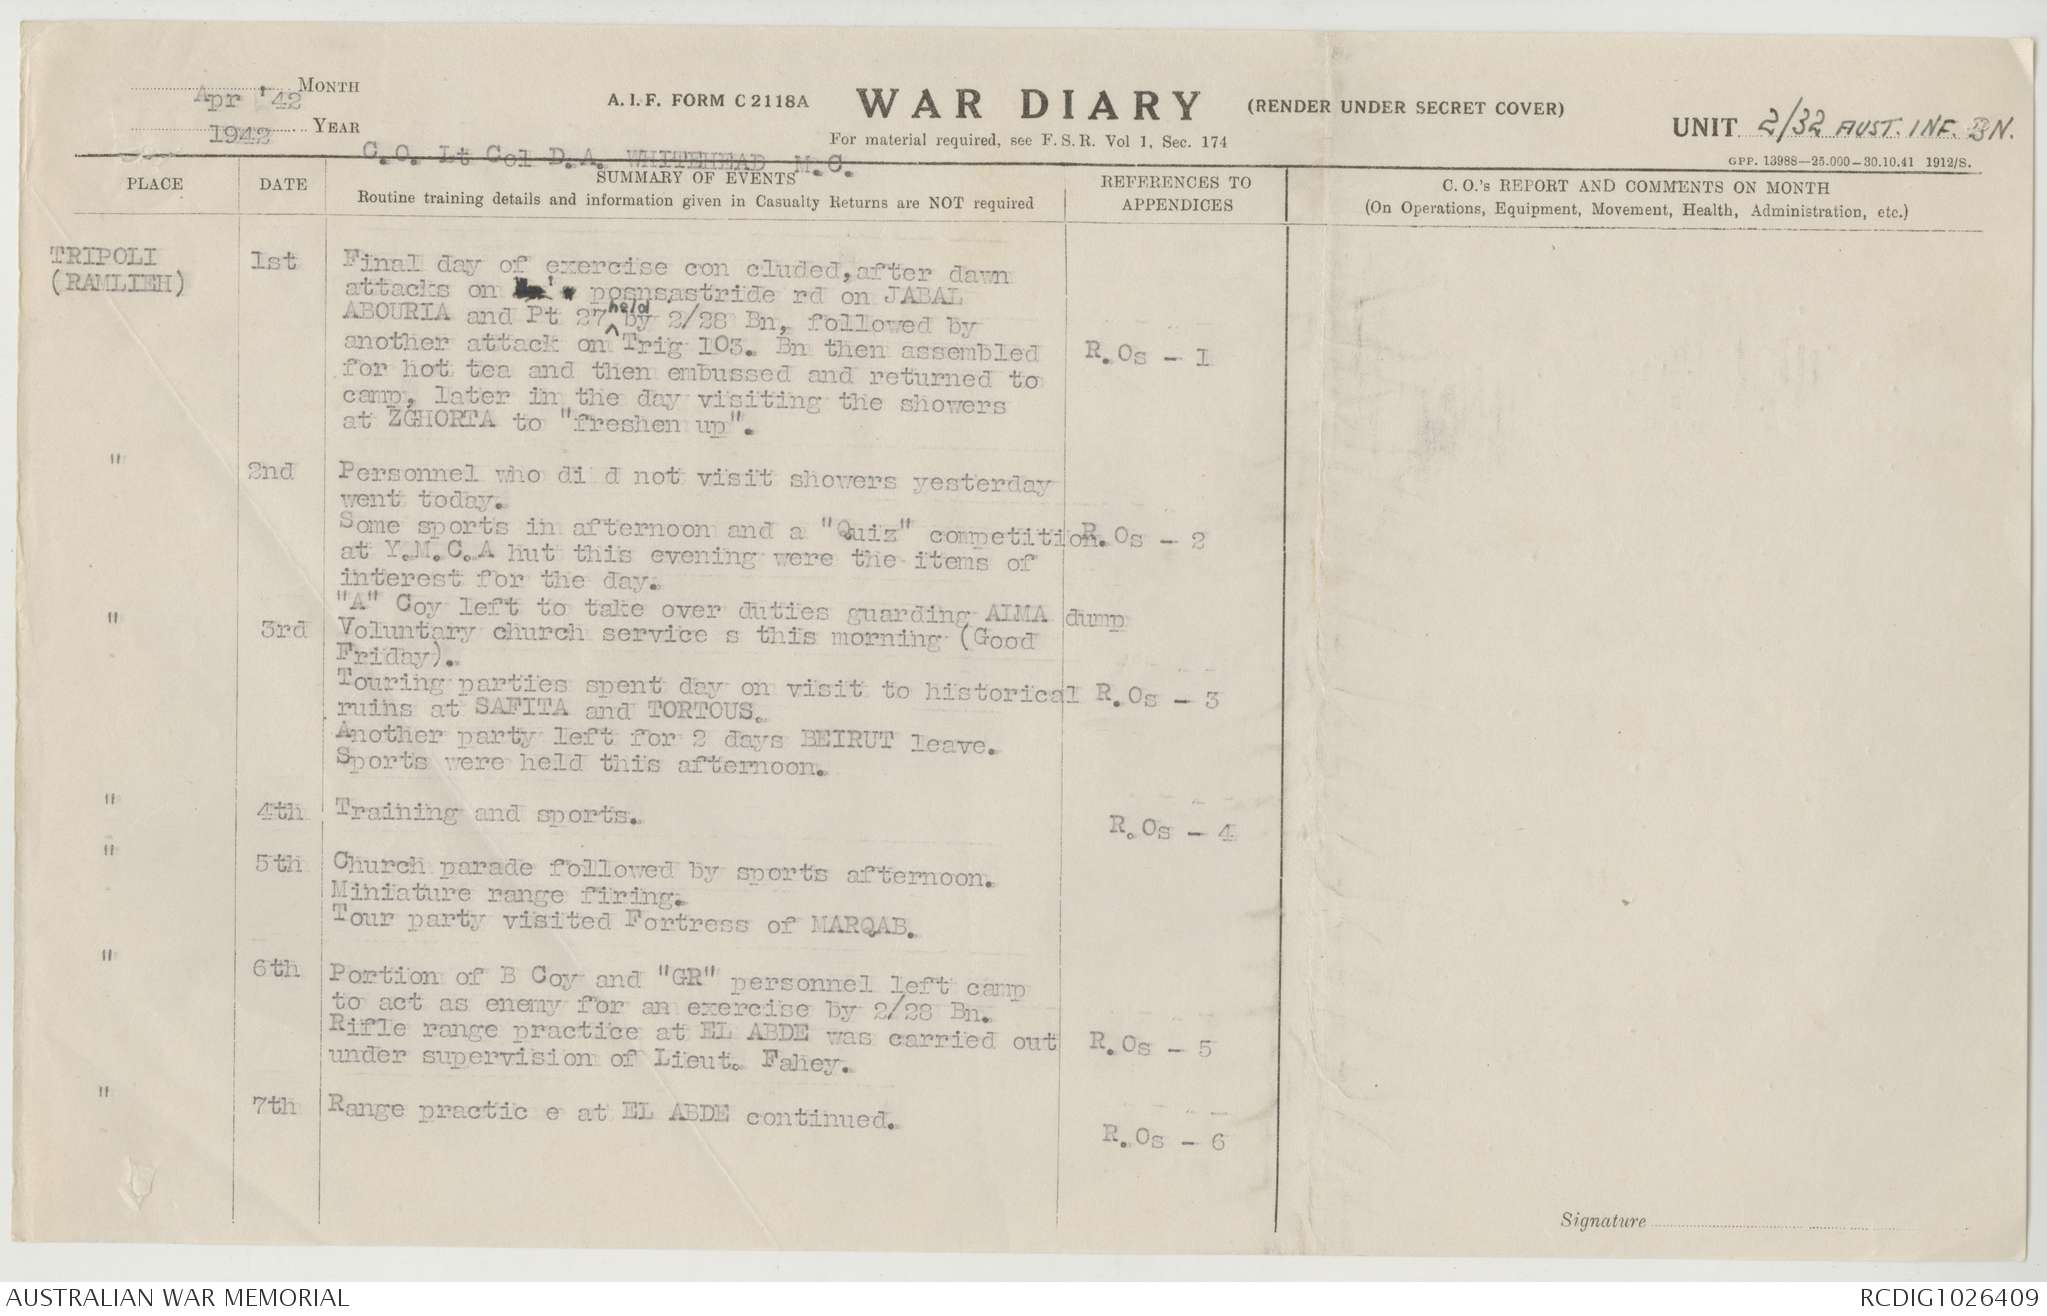 Apr '42 MONTH
1942 YEAR
A.I.F. FORM C2118A
WAR DIARY
(RENDER UNDER SECRET COVER)
For material required, see F.S.R. Vol 1, Sec. 174
UNIT 2/32 AUST. INF. BN.
GPP. 13988—25.000—30.10.41 1912/S.
C.O. Lt Col D.A. WHITEHEAD M.C.
PLACE
DATE
SUMMARY OF EVENTS
Routine training details and information given in Casualty Returns are NOT required
REFERENCES TO
APPENDICES
C.O.'s REPORT AND COMMENTS ON MONTH
(On Operations, Equipment, Movement, Health, Administration, etc.)
TRIPOLI
(RAMLIEH)
1st
Final day of exercise con cluded,after dawn
attacks on posnsastride rd on JABAL
ABOURIA and Pt 27 held by 2/28 Bn, followed by
another attack on Trig 103. Bn then assembled
for hot tea and then embussed and returned to
camp, later in the day visiting the showers
at ZGHORTA to "freshen up".
R.Os - 1
"
2nd
Personnel who di d not visit showers yesterday
went today.
Some sports in afternoon and a "Quiz" competition.
at Y.M.C.A hut this evening were the items of
interest for the day.
"A" Coy left to take over duties guarding AIMA dump
R.Os - 2
"
3rd
Voluntary church service s this morning (Good
Friday).
Touring parties spent day on visit to historical
ruins at SAFITA and TORTOUS.
Another party left for 2 days BEIRUT leave.
Sports were held this afternoon.
R.Os - 3
"
4th
Training and sports.
R.Os - 4
"
5th
Church parade followed by sports afternoon.
Miniature range firing.
Tour party visited Fortress of MARQAB.
"
6th
Portion of B Coy and "GR" personnel left camp
to act as enemy for an exercise by 2/28 Bn.
Rifle range practice at EL ABDE was carried out
under supervision of Lieut. Fahey.
R.Os - 5
"
7th
Range practic e at EL ABDE continued.
R.Os - 6
Signature
AUSTRALIAN WAR MEMORIAL
RCDIG1026409